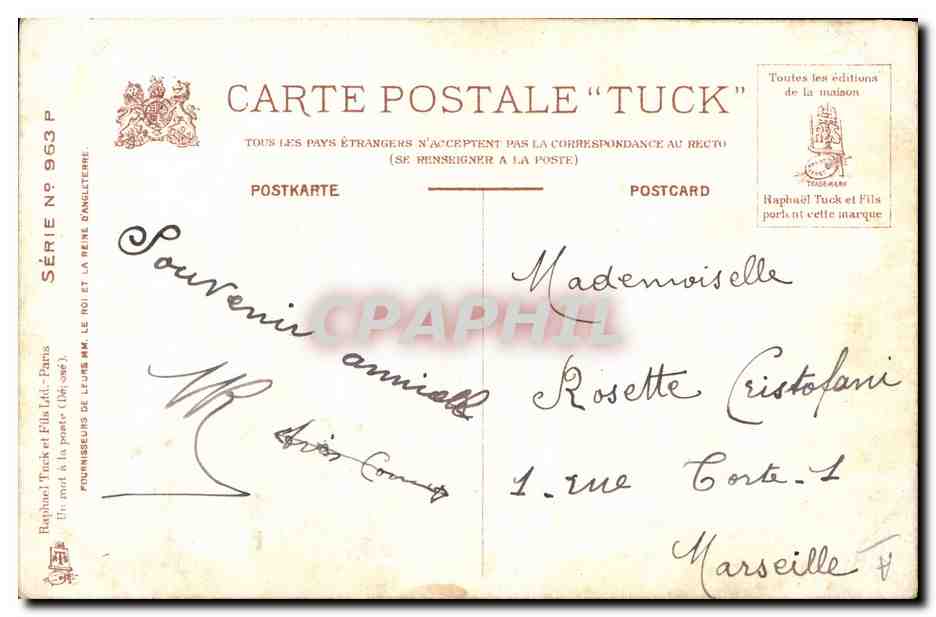 CARTE POSTALE "TUCK"
TOUS LES PAYS ÉTRANGERS N'ACCEPTENT PAS LA CORRESPONDANCE AU RECTO
(SE RENSEIGNER A LA POSTE)
POSTKARTE
POSTCARD
Toutes les éditions
de la maison
TRADE MARK
Raphaël Tuck et Fils
portant cette marque
SÉRIE No. 963 P
Raphael Tuck et Fils Ltd.-Paris
Un mot à la poste (Déposé).
FOURNISSEURS DE LEURS MM. LE ROI ET LA REINE D'ANGLETERRE.
Souvenir amical
Mademoiselle
Rosette Cristofani
1-rue Corte-1
Marseille
CPAPHIL